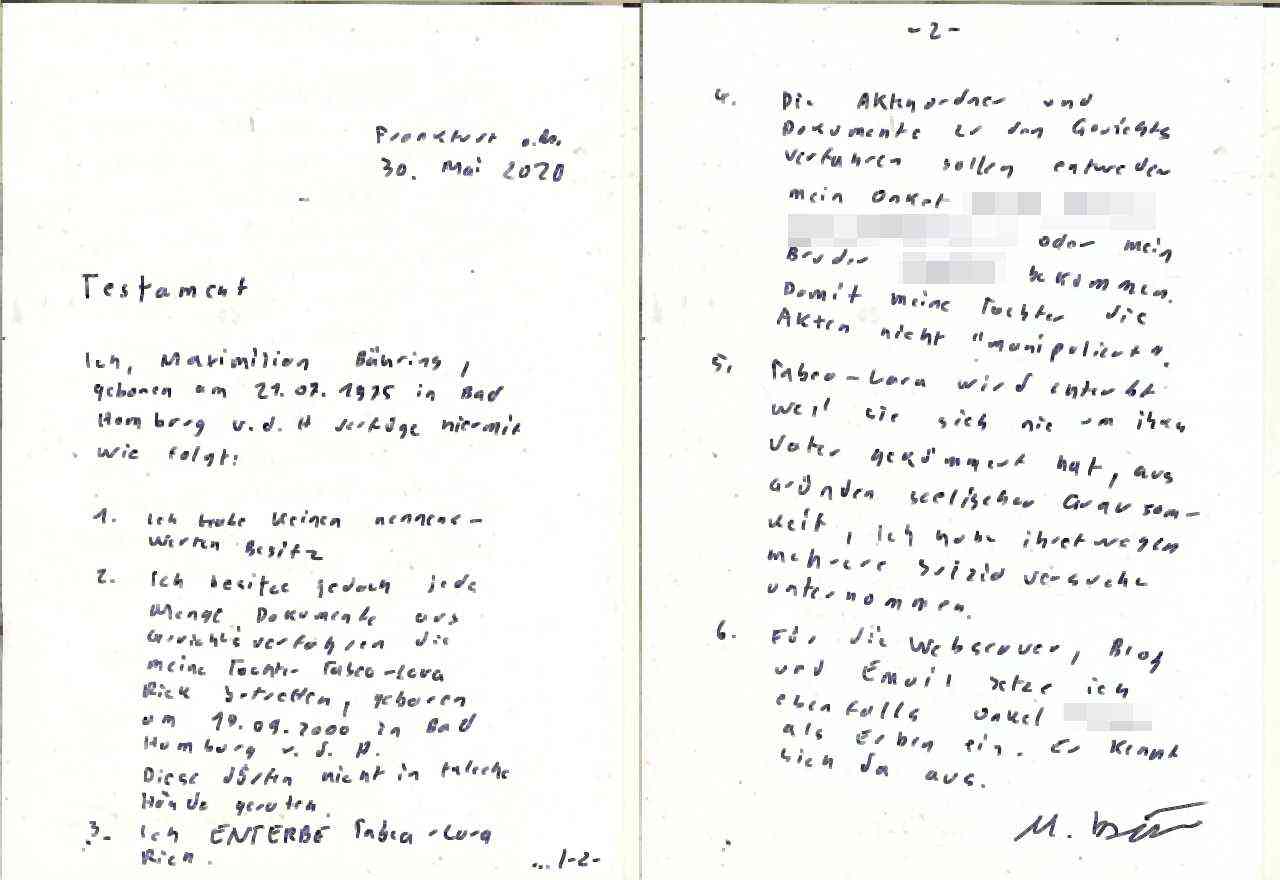 Frankfurt a.M.
30. Mai 2020
Testament
Ich, Maximilian Bähring,
geboren am 21.07.1975 in Bad
Homburg v.d.H verfüge hiermit
wie folgt:
1. Ich habe keinen nennens-
werten Besitz
2. Ich besitze jedoch jede
Menge Dokumente aus
Gerichtsverfahren die
meine Tochter Tabea-Lara
Riek betreffen, geboren
am 19.09.2000 in Bad
Homburg v. d. H.
Diese dürfen nicht in falsche
Hände geraten.
3. Ich ENTERBE Tabea-Lara
Riek.
... /-2-
-2-
4. Die Aktenordner und
Dokumente zu den Gerichts
verfahren sollen entweder
mein Onkel
oder mein
Bruder bekommen.
Damit meine Tochter die
Akten nicht "manipuliert".
5. Tabea-Lara wird enterbt
weil sie sich nie um ihren
Vater gekümmert hat, aus
Gründen seelischer Grausam-
keit, ich habe ihretwegen
mehrere Suizid versuche
unternommen.
6. Für die Webserver, Blog
und Email setze ich
ebenfalls Onkel
als Erben ein. Er kennt
sich da aus.